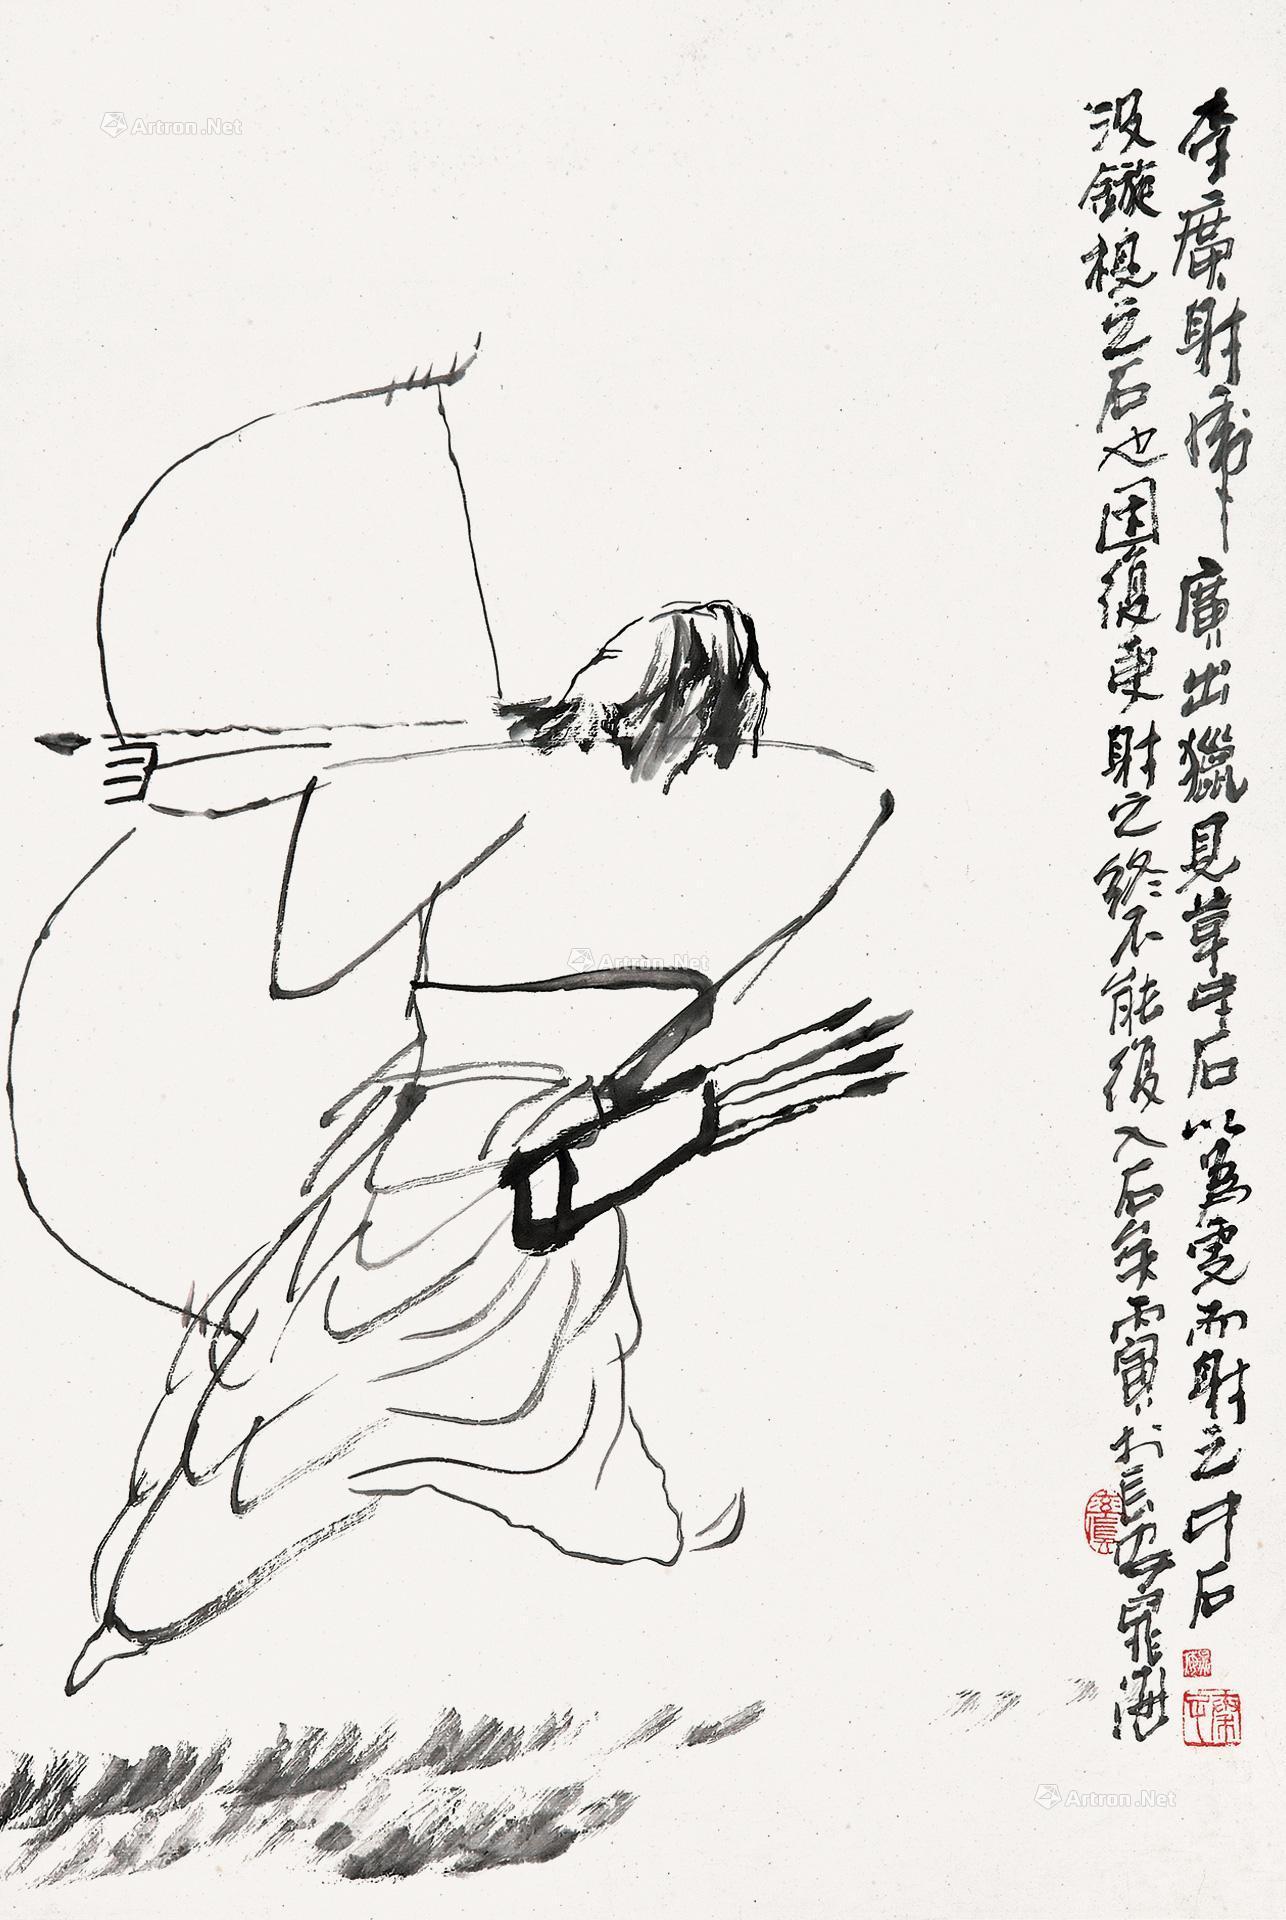 李廣射虎 廣出獵見草中石以為虎而射之中石
没鏃視之石也因復更射之終不能復入石矣 丙寅於長安 羅海
Artron.Net
Artron.Net
Artron.Net